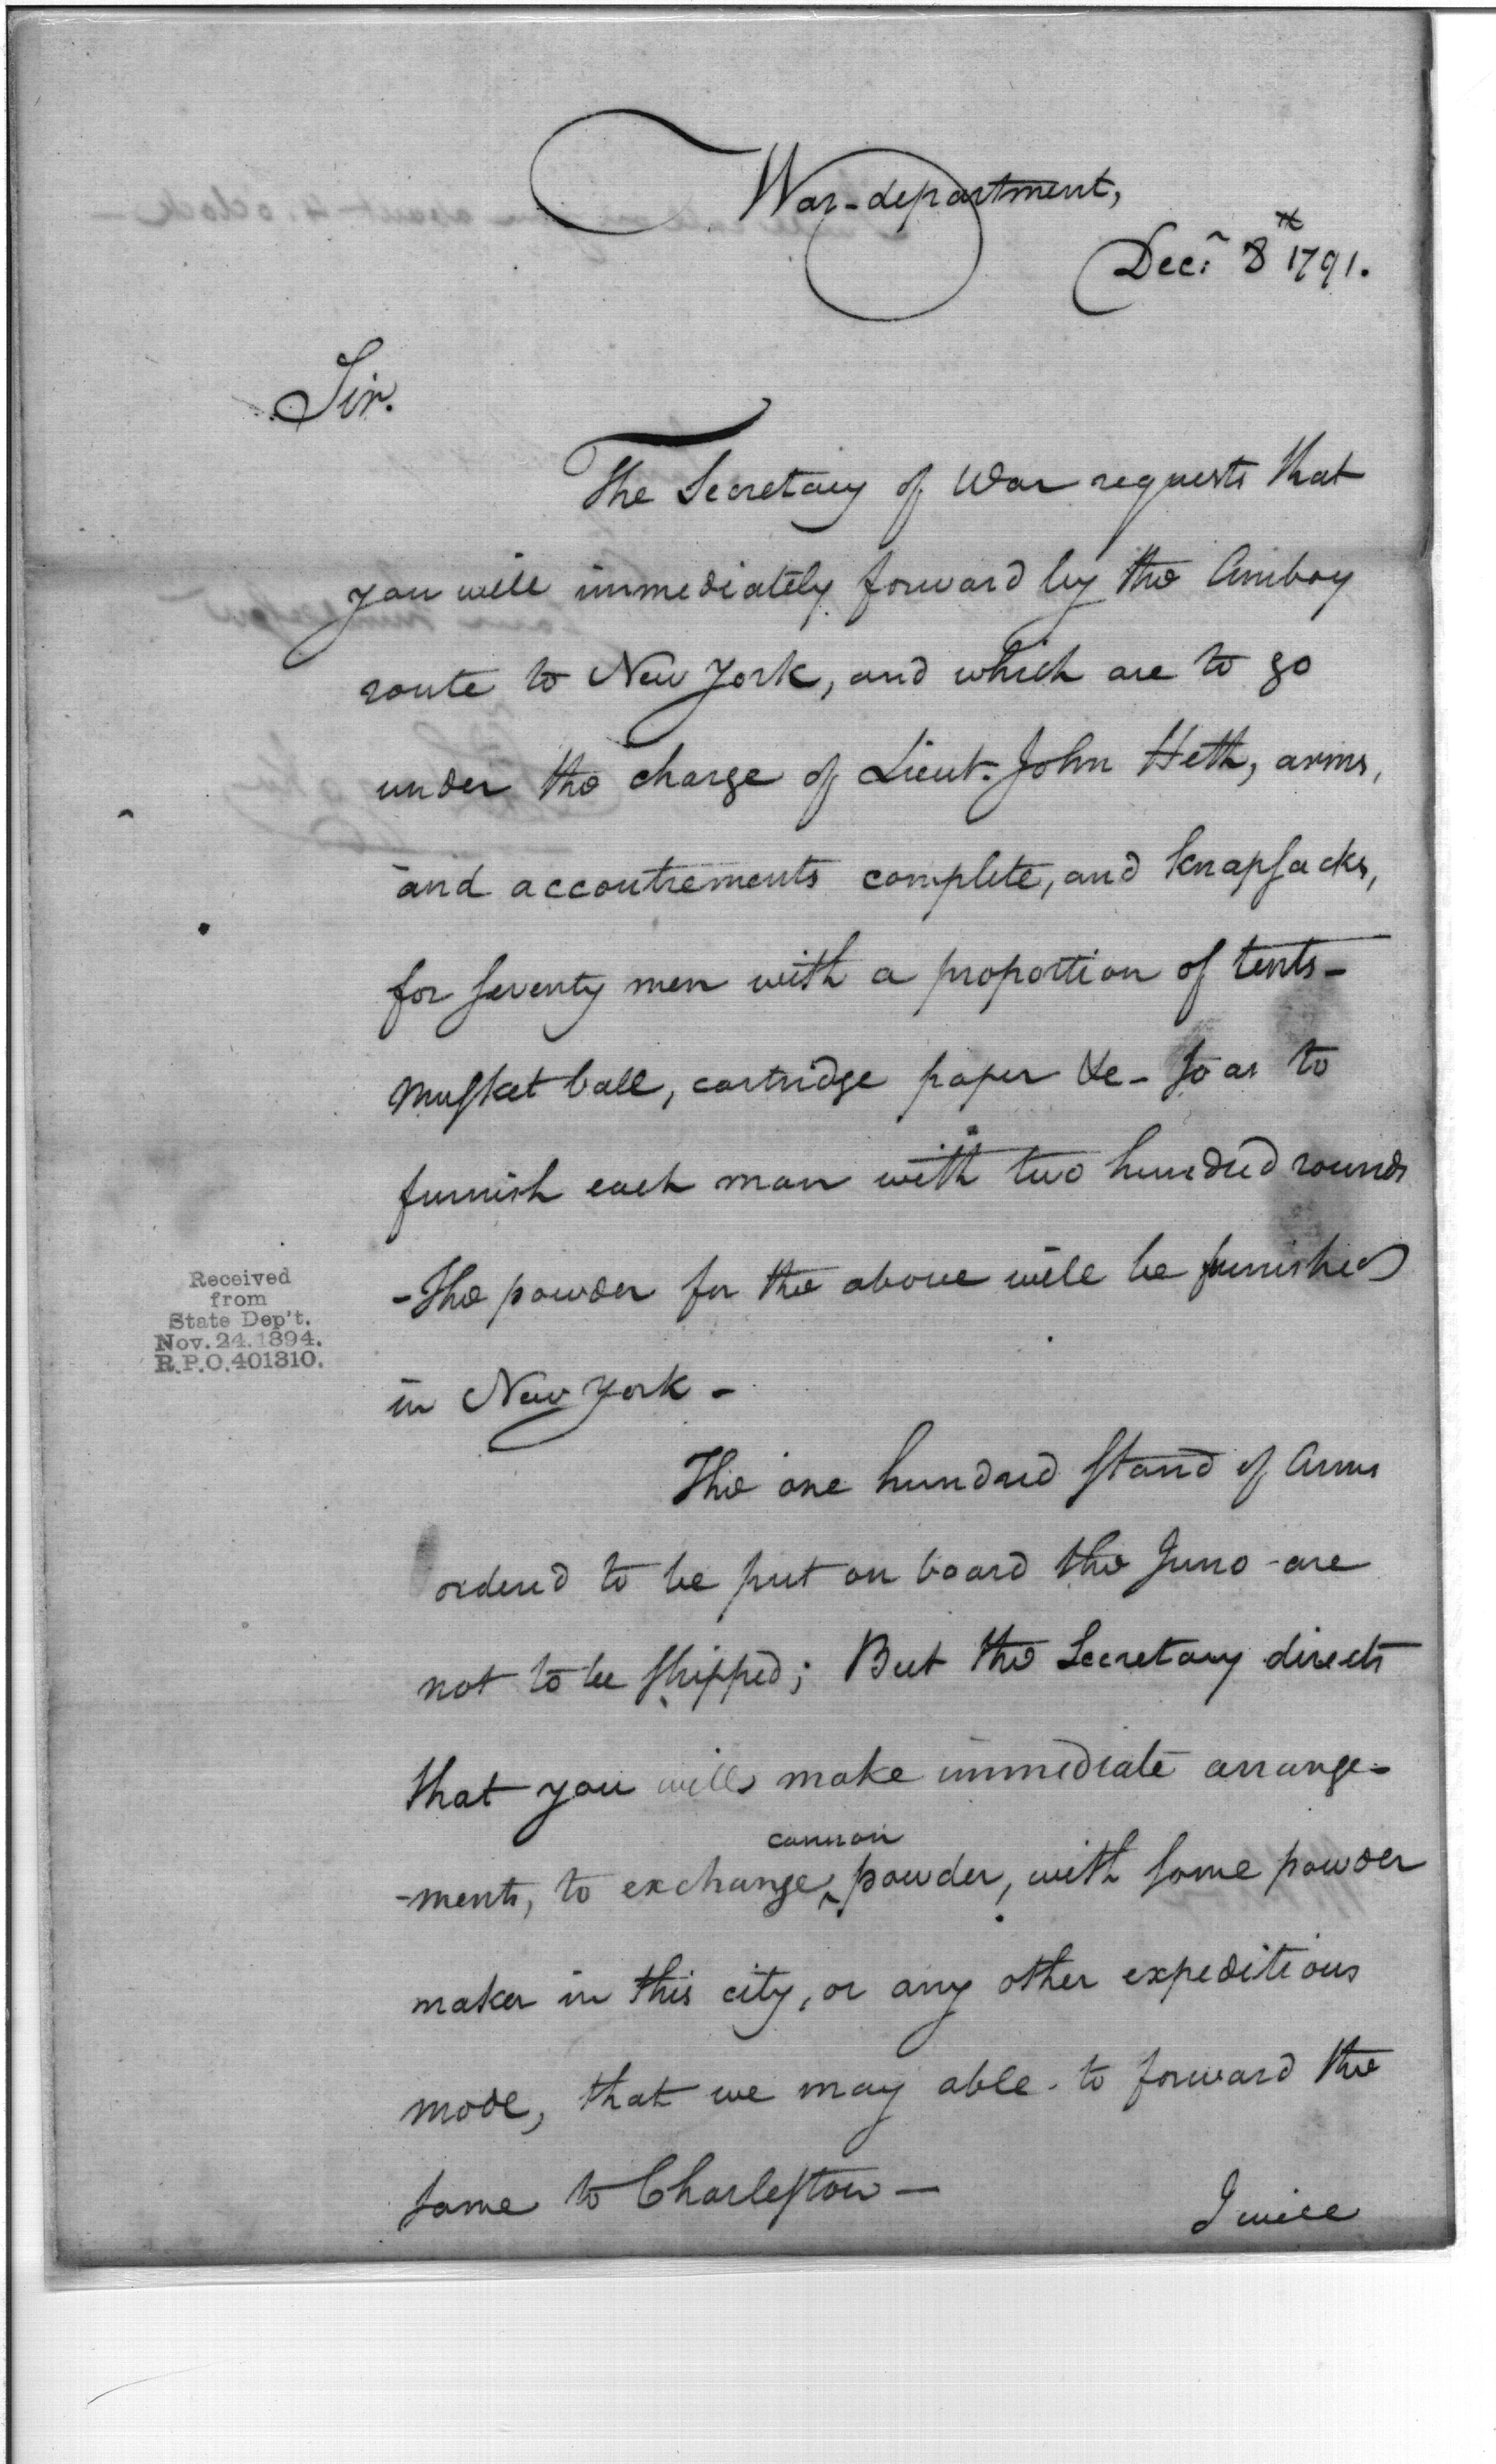 War-department,
Decr. 8th 1791.
Sir.
The Secretary of War requests that
you will immediately forward by the Amboy
route to New York, and which are to go
under the charge of Lieut. John Heth, arms,
and accoutrements complete, and knapsacks,
for seventy men with a proportion of tents-
musket ball, cartridge paper &c- so as to
furnish each man with two hundred rounds
-The powder for the above will be furnished
in New York -
The one hundred stand of Arms
ordered to be put on board the Juno - are
not to be shipped; But the Secretary directs
that you will make immediate arrange-
cannon
-ments, to exchange ‸ powder, with some powder
maker in this city, or any other expeditious
mode, that we may able - to forward the
same to Charleston —
I will
Received
from
State Dep't.
Nov. 24. 1894.
R.P.O. 401310.